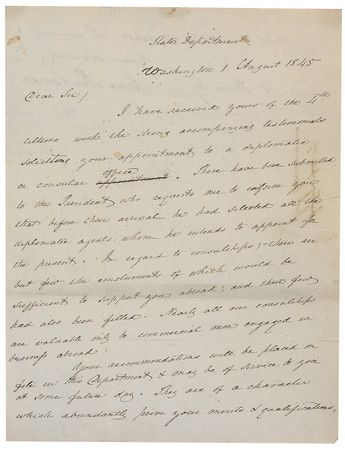 State Department
Washington 1 August 1845
Dear Sir,
I have received yours of the 4th
ultimo with the strong accompanying testimonials
soliciting your appointment to a diplomatic
office
or consular appointment. These have been submitted
to the President who requests me to inform you
that before their arrival he had selected all the
diplomatic agents whom he intends to appoint for
the present. In regard to consulships; there are
but few the emoluments of which would be
sufficient to support you abroad; and these few
had also been filled. Nearly all our consulships
are valuable only to commercial men engaged in
business abroad.
Your recommendations will be placed on
file in this Department & may be of service to you
at some future day. They are of a character
which abundantly prove your merits & qualifications,